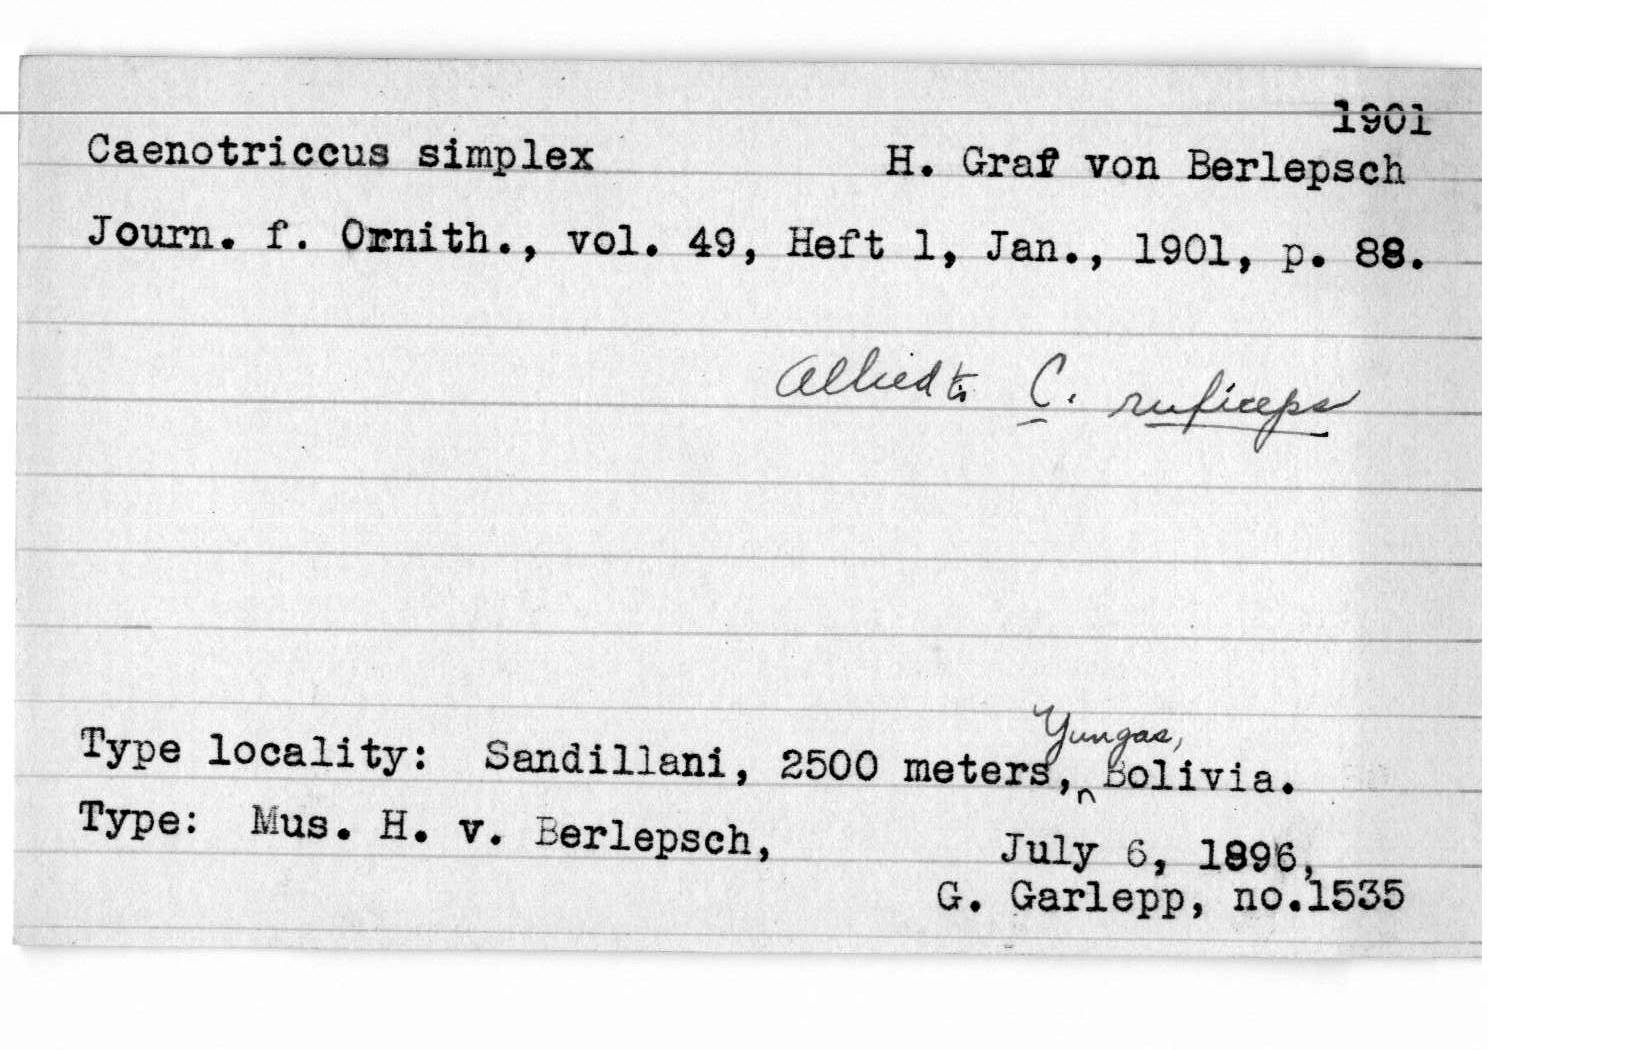 1901
Caenotriccus simplex H. Graf von Berlepsch
Journ. f. Ornith., vol. 49, Heft 1, Jan., 1901, p. 88.
Allied to C. ruficeps
Yungas,
Type locality: Sandillani, 2500 meters, Bolivia.
Type: Mus. H. v. Berlepsch, July 6, 1896,
G. Garlepp, no.1535